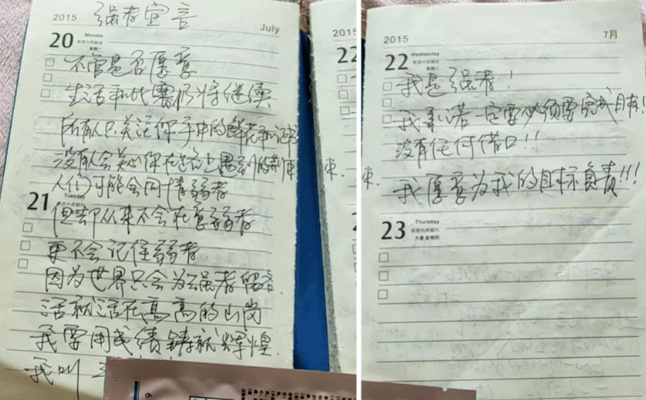 强者宣言
2015
July
20
Monday
不管是否愿意
生活和比赛仍将继续
所有人只关注你手中的鲜花和
没有人会关心你在路上遇到的荆
人们可能会同情弱者
21
Tuesday
但却从来不会在意弱者
更不会记住弱者
因为世界只会为强者
活就活在高高的山岗
我要用成绩铸就辉煌
我叫
22
束.
2015
7月
22
Wednesday
我是强者!
我 一定要必须要完成目标!
没有任何借口!!
束.
我愿意为我的目标负责!!!
23
Thursday